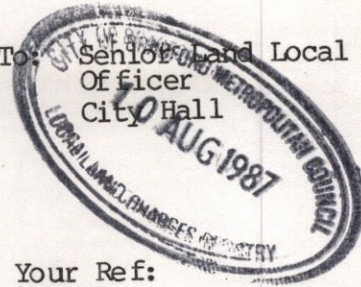 To: Senior Land Local
Officer
City Hall
CITY OF BRADFORD METROPOLITAN COUNCIL
10 AUG 1987
LOCAL LAND CHARGES REGISTRY
Your Ref: